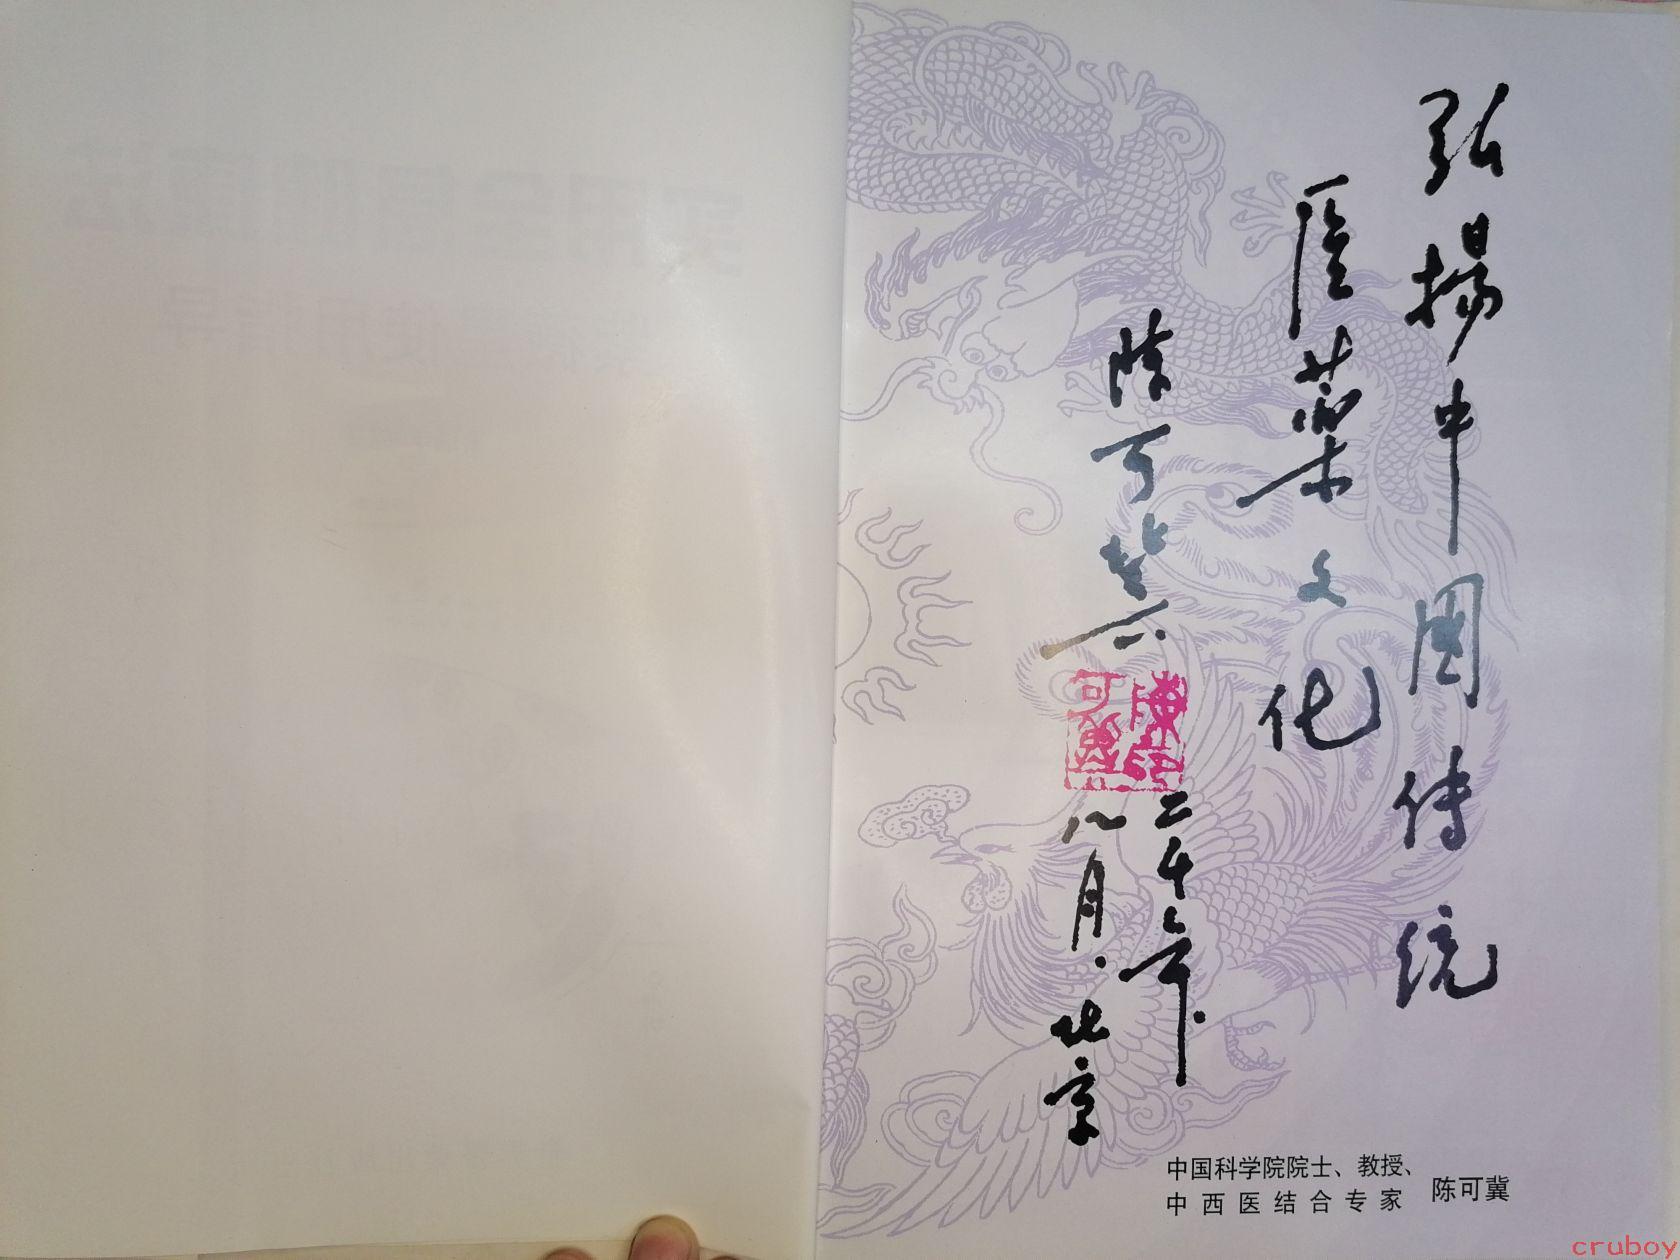 弘揚中國傳統
醫藥文化
陳可冀
陳印
可冀
二千年.
八月.北京
中国科学院院士、教授、
中西医结合专家 陈可冀
cruboy